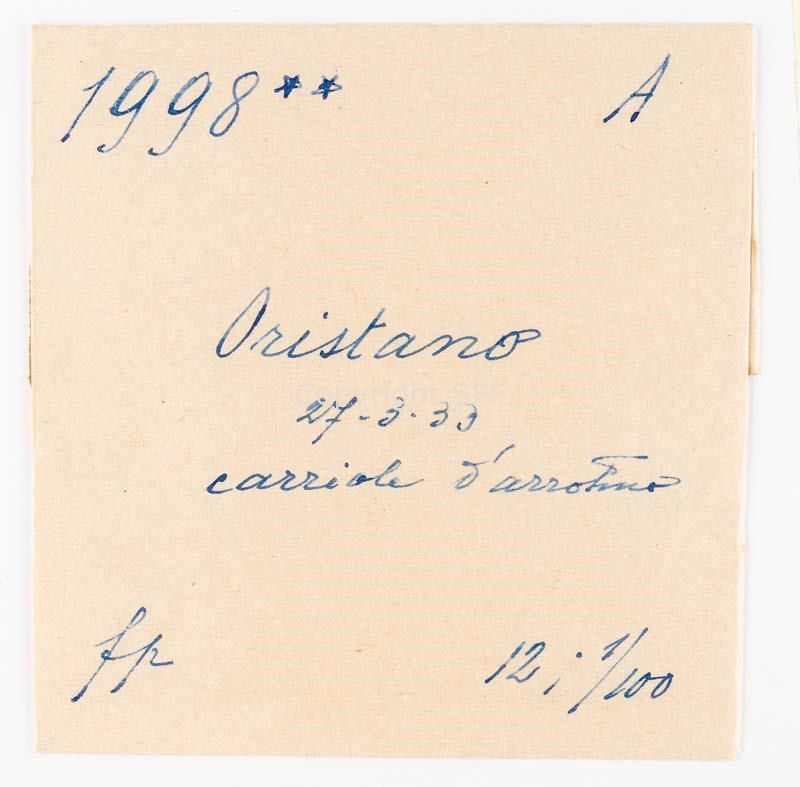 1998** A
Oristano
Copyright SFF
27-3-33
carriole d'arrotino
fp 12; 1/100